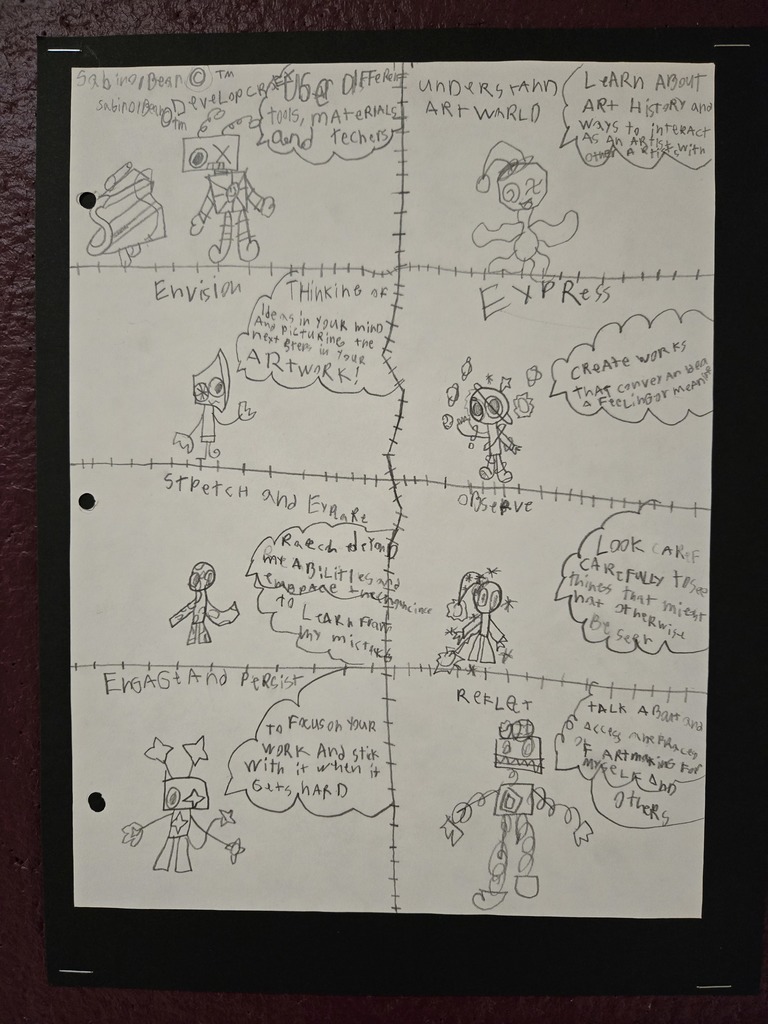 Sabino/Bean © TM
Sabino/Bean © TM
Develop
USE DIFFERENT
tools, materials
and techers
UNDERSTAND
ART WORLD
LEARN ABOUT
ART HISTORY and
ways to interact
AS AN ARTIST with
other Artists
Envision
THINKING OF
Ideas in your mind
And picturing the
next steps in your
ARTWORK!
EXPRESS
CREATE WORKS
that convey an
A FEELING or meaning
STRETCH and
Raech
my ABILITIES and
TO LEARN from
my
OBSERVE
LOOK CAREF
CAREFULLY to see
things that
not otherwise
Be seen
ENGAGE AND PERSIST
TO FOCUS ON YOUR
WORK And stick
with it when it
GETS HARD
REFLET
TALK ABOUT and
Access
OF ARTMAKING FOR
MYSELF AND
OTHERS